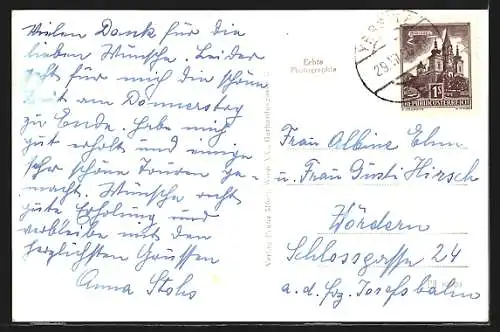 Vielen Dank für die
lieben Wünsche. Leider
geht für mich die schöne
Zeit am Donnerstag
zu Ende. Habe mich
gut erholt und einige
sehr schöne Touren ge-
macht. Wünsche recht
gute Erholung und
verbleibe mit den
herzlichsten Grüssen
Anna Stohs
Echte
Photographie
1S
REPUBLIK ÖSTERREICH
Frau Albine Elm
u. Frau Gusti Hirsch
Wördern
Schlossgasse 24
a. d. Frz. Josefsbahn